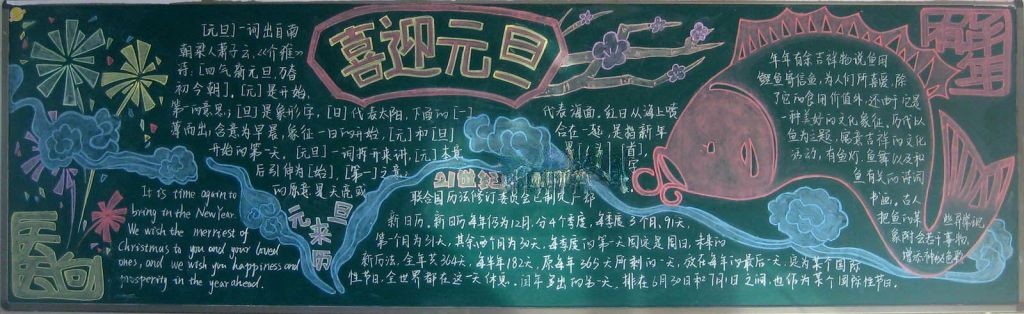 喜迎元旦
[元旦]一词出自南
朝梁人萧子云,《介雅》
诗:[四气新元旦,万寿
初今朝]。[元]是开始,
第一的意思;[旦]是象形字,[日]代表太阳,下面的[一]
代表海面,红日从海上喷
薄而出,含意为早晨,象征一日的开始。[元]和[旦]
合在一起,是指新年
开始的第一天。[元旦]一词拆开来讲,[元]本意
后引伸为[始]、[第一]之意;
元旦来历
It is time again to
bring in the New Year.
We wish the merriest of
Christmas to you and your loved
ones, and we wish you happiness and
prosperity in the year ahead.
21世纪
联合国历法修订委员会已制定一部
新日历。新日历每年仍为12月,分4个季度,每季度3个月,91天,
第一个月为31天,其余两个月为30天,每季度的第一天固定是周日,未来的
新历法,全年共364天,每半年182天,原每年365天所剩的一天,放在每年的最后一天,定为某个国际
性节日,全世界都在这一天休息。闰年多出的一天,排在6月30日和7月1日之间,也作为某个国际性节日。
年年有余吉祥物说鱼图
鲤鱼等信鱼,为人们所喜爱,除
了它的食用价值外,还由于它是
一种美好的文化象征,历代以
鱼为主题,寓意吉祥的文化
活动,有鱼灯、鱼舞以及和
鱼有关的诗词
书画,古人
把鱼的某
些异常现
象附会于事物,
增添神秘色彩